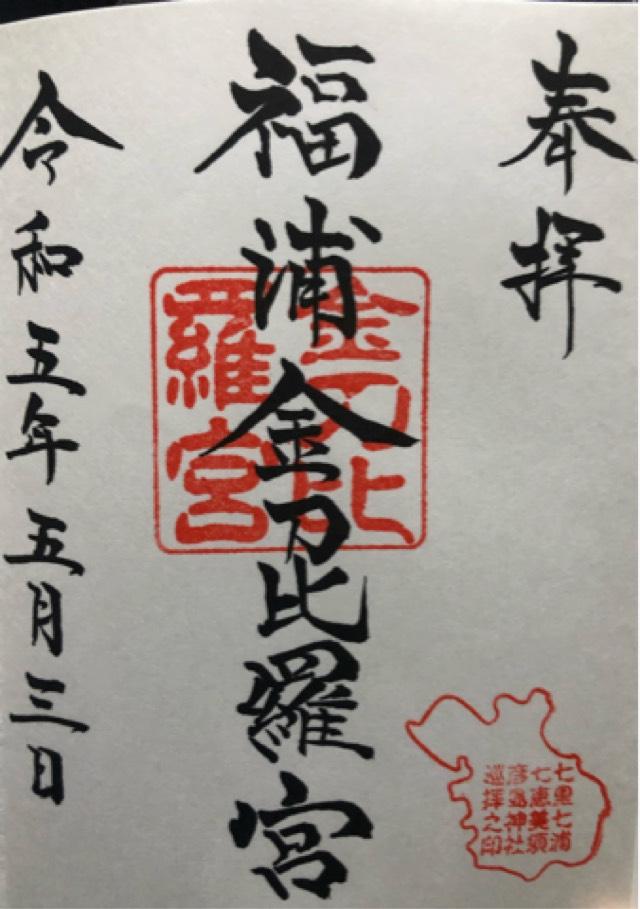 奉拝
福浦金刀比羅宮
金刀比
羅宮
令和五年五月三日
七里七浦
七恵美須
彦島神社
巡拝之印